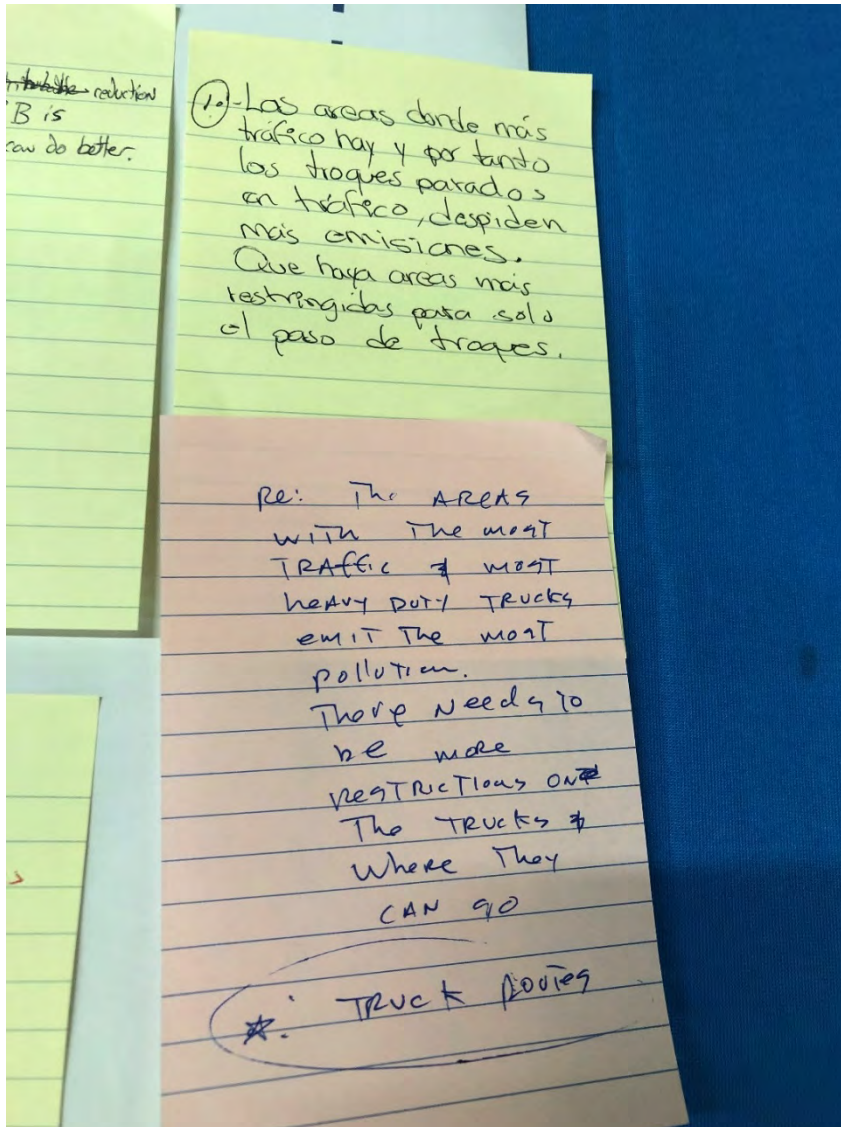 reduction
B is
can do better.
1.- Las areas donde más
tráfico hay y por tanto
los troques parados
en tráfico, despiden
más emisiones.
Que haya areas más
restringidas para solo
el paso de troques.
Re: The AREAS
WITH The MOST
TRAFFIC & MOST
HEAVY DUTY TRUCKS
EMIT The MOST
pollution.
There Needs to
be more
RESTRICTIONS ON
The TRUCKS &
Where They
CAN go
☆: TRUCK ROUTES